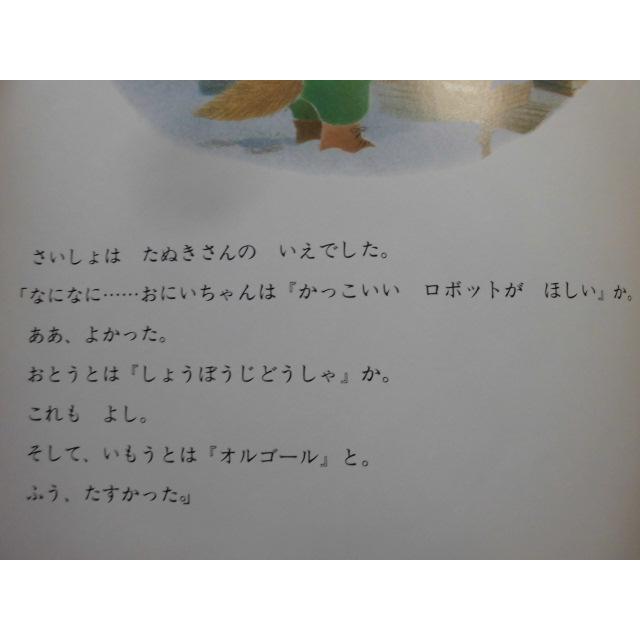 さいしょは　たぬきさんの　いえでした。
「なになに……おにいちゃんは『かっこいい　ロボットが　ほしい』か。
ああ、よかった。
おとうとは『しょうぼうじどうしゃ』か。
これも　よし。
そして、いもうとは『オルゴール』と。
ふう、たすかった。」